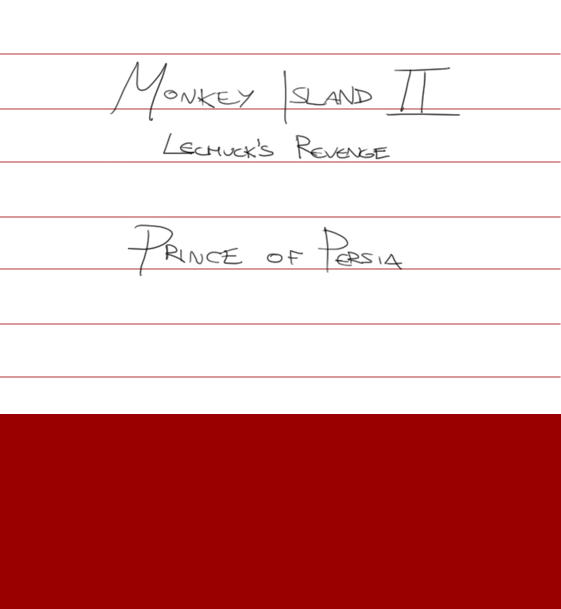 Monkey Island II
LeChuck's Revenge
Prince of Persia